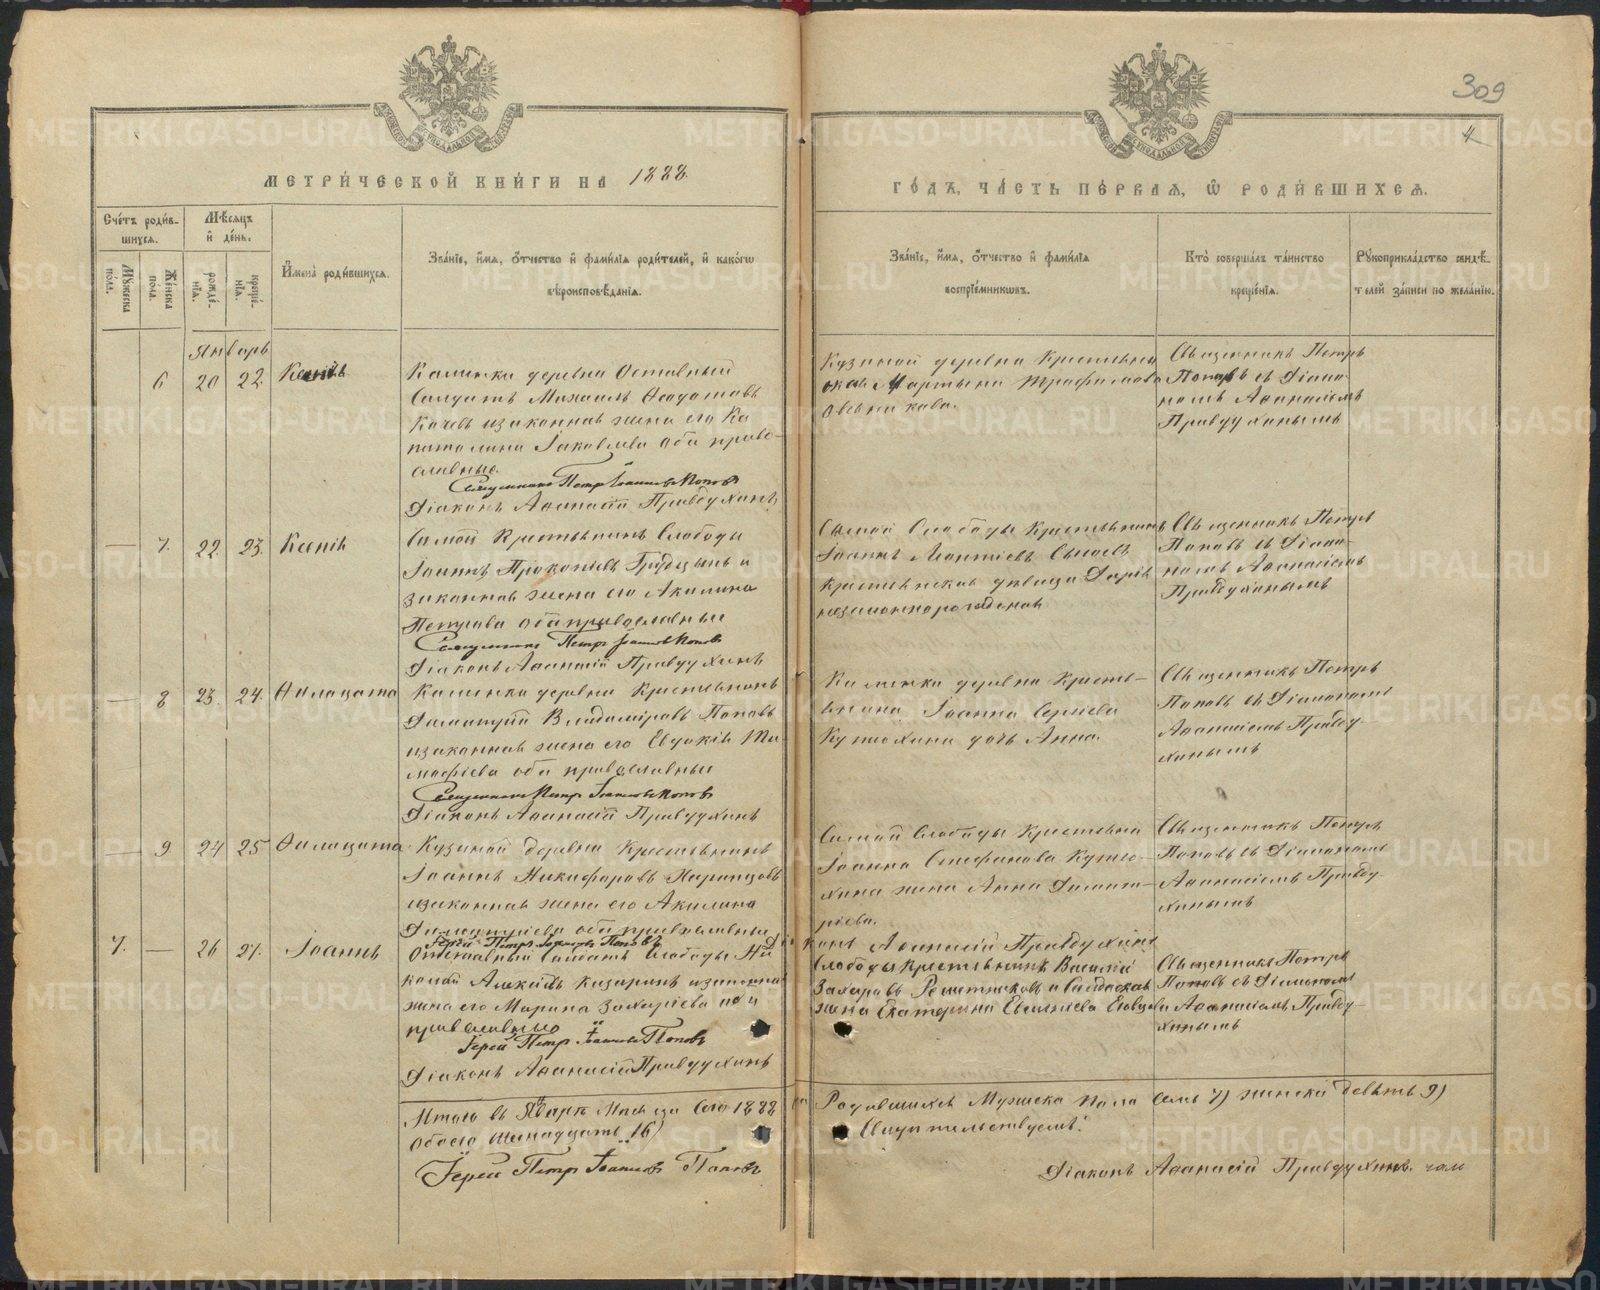 309
4
МЕТРИ́ЧЕСКОЙ КНИ́ГИ НА 1888.
ГО́ДЪ, ЧА́СТЬ ПЕ́РВАЯ, Ѡ҆ РОДИ́ВШИХСЯ.
Сче́тъ роди́в-
шихся.
Мꙋ́жеска по́ла.
Же́нска по́ла.
Мѣ́сяцъ
и҆ де́нь.
рожде́-
нїя.
креще́-
нїя.
И҆мена̀ роди́вшихся.
Зва́нїе, и҆мя, ѻ҆́тчество и҆ фами́лїя роди́телей, и҆ како́гѡ
вѣроисповѣ́данїя.
Зва́нїе, и҆мя, ѻ҆́тчество и҆ фами́лїя
воспрїе́мникѡвъ.
Кто̀ соверша́лъ та́инство
креще́нїя.
Рꙋкоприкла́дство свидѣ́-
телей за́писи по жела́нїю.
Январь
6 20 22. Ксенія
Калинки деревни Отставный
Солдатъ Михаилъ Ѳедотовъ
Качевъ и законная жена его Ка
питолина Іаковлева оба право-
славные.
Священникъ Петръ Іоанновъ Поповъ
Діаконъ Аѳанасій Правдухинъ
Кузиной деревни Крестьянс
кая Мартына Трофимова
Овсянникова.
Священникъ Петръ
Поповъ съ Діако-
номъ Аѳанасіемъ
Правдухинымъ
— 7. 22 23. Ксенія
Самой Крестьянинъ Слободы
Іоаннъ Прокопіевъ и
законная жена его Акилина
Петрова оба православные
Священникъ Петръ Іоанновъ Поповъ
Діаконъ Аѳанасій Правдухинъ
Самой Слободы Крестьянинъ
Іоаннъ Леонтіевъ
крестьянская дѣвица Дарія
незаконнорожденная
Священникъ Петръ
Поповъ съ Діако-
номъ Аѳанасіемъ
Правдухинымъ
— 8 23. 24. Ѳилицата
Калинки деревни Крестьянинъ
Димитрій Владиміровъ Поповъ
и законная жена его Евдокія Ти
мофіева оба православные
Священникъ Петръ Іоанновъ Поповъ
Діаконъ Аѳанасій Правдухинъ
Калинки деревни Кресть-
янина Іоанна Сергіева
Кутюхина дочь Анна.
Священникъ Петръ
Поповъ съ Діакономъ
Аѳанасіемъ Правду-
хинымъ
— 9 24 25 Ѳилицата
Кузиной деревни Крестьянинъ
Іоаннъ Никифоровъ
и законная жена его Акилина
Димитріева оба православные
Іерей Петръ Іоанновъ Поповъ
Діаконъ Аѳанасій Правдухинъ
Самой Слободы Крестьяна
Іоанна Стефанова Кутю-
хина жена Анна Димит-
ріева.
Священникъ Петръ
Поповъ съ Діакономъ
Аѳанасіемъ Правду-
хинымъ
7. — 26 27. Іоаннъ
Отставный Солдатъ Слободы Ни
колай Алексіевъ Казаринъ и законная
жена его Марина Захаріева
православные
Іерей Петръ Іоанновъ Поповъ
Діаконъ Аѳанасій Правдухинъ
Слободы Крестьянинъ Василій
Захаровъ Решетниковъ и Солдатская
жена Екатерина Евгеніева
Священникъ Петръ
Поповъ съ Діакономъ
Аѳанасіемъ Правду-
хинымъ
Итого въ Январѣ Месяце Сего 1888 го
Родившихся Мужеска пола Семь 7) женска девять 9)
Обоего Шестнадцать 16)
Свидѣтельствуемъ:
Іерей Петръ Іоанновъ Поповъ
Діаконъ Аѳанасій Правдухинъ.